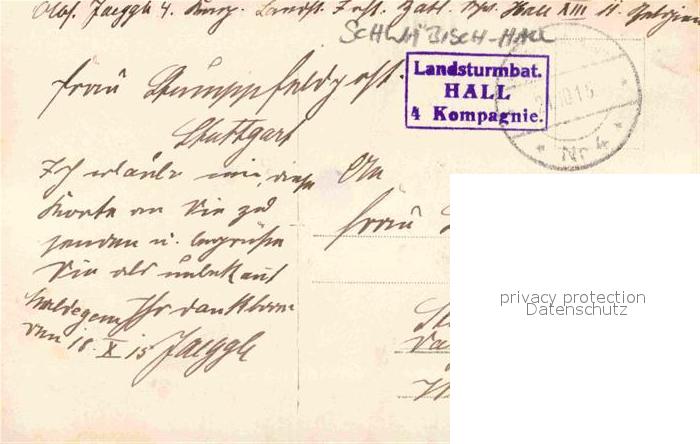 Jaeggle 4. Komp. Landst. Inft. Batl. Hall XIII
SCHWÄBISCH-HALL
Landsturmbat.
HALL
4 Kompagnie.
10 15
* Nr 4 *
Frau Stumpp feldpost.
Stuttgart
Ich erlaube mir, diese
Karte an Sie zu
senden u. begrüße
Sie als unbekannt
Ihr dankbarer
den 18. X 15 Jaeggle
An
Frau
privacy protection
Datenschutz